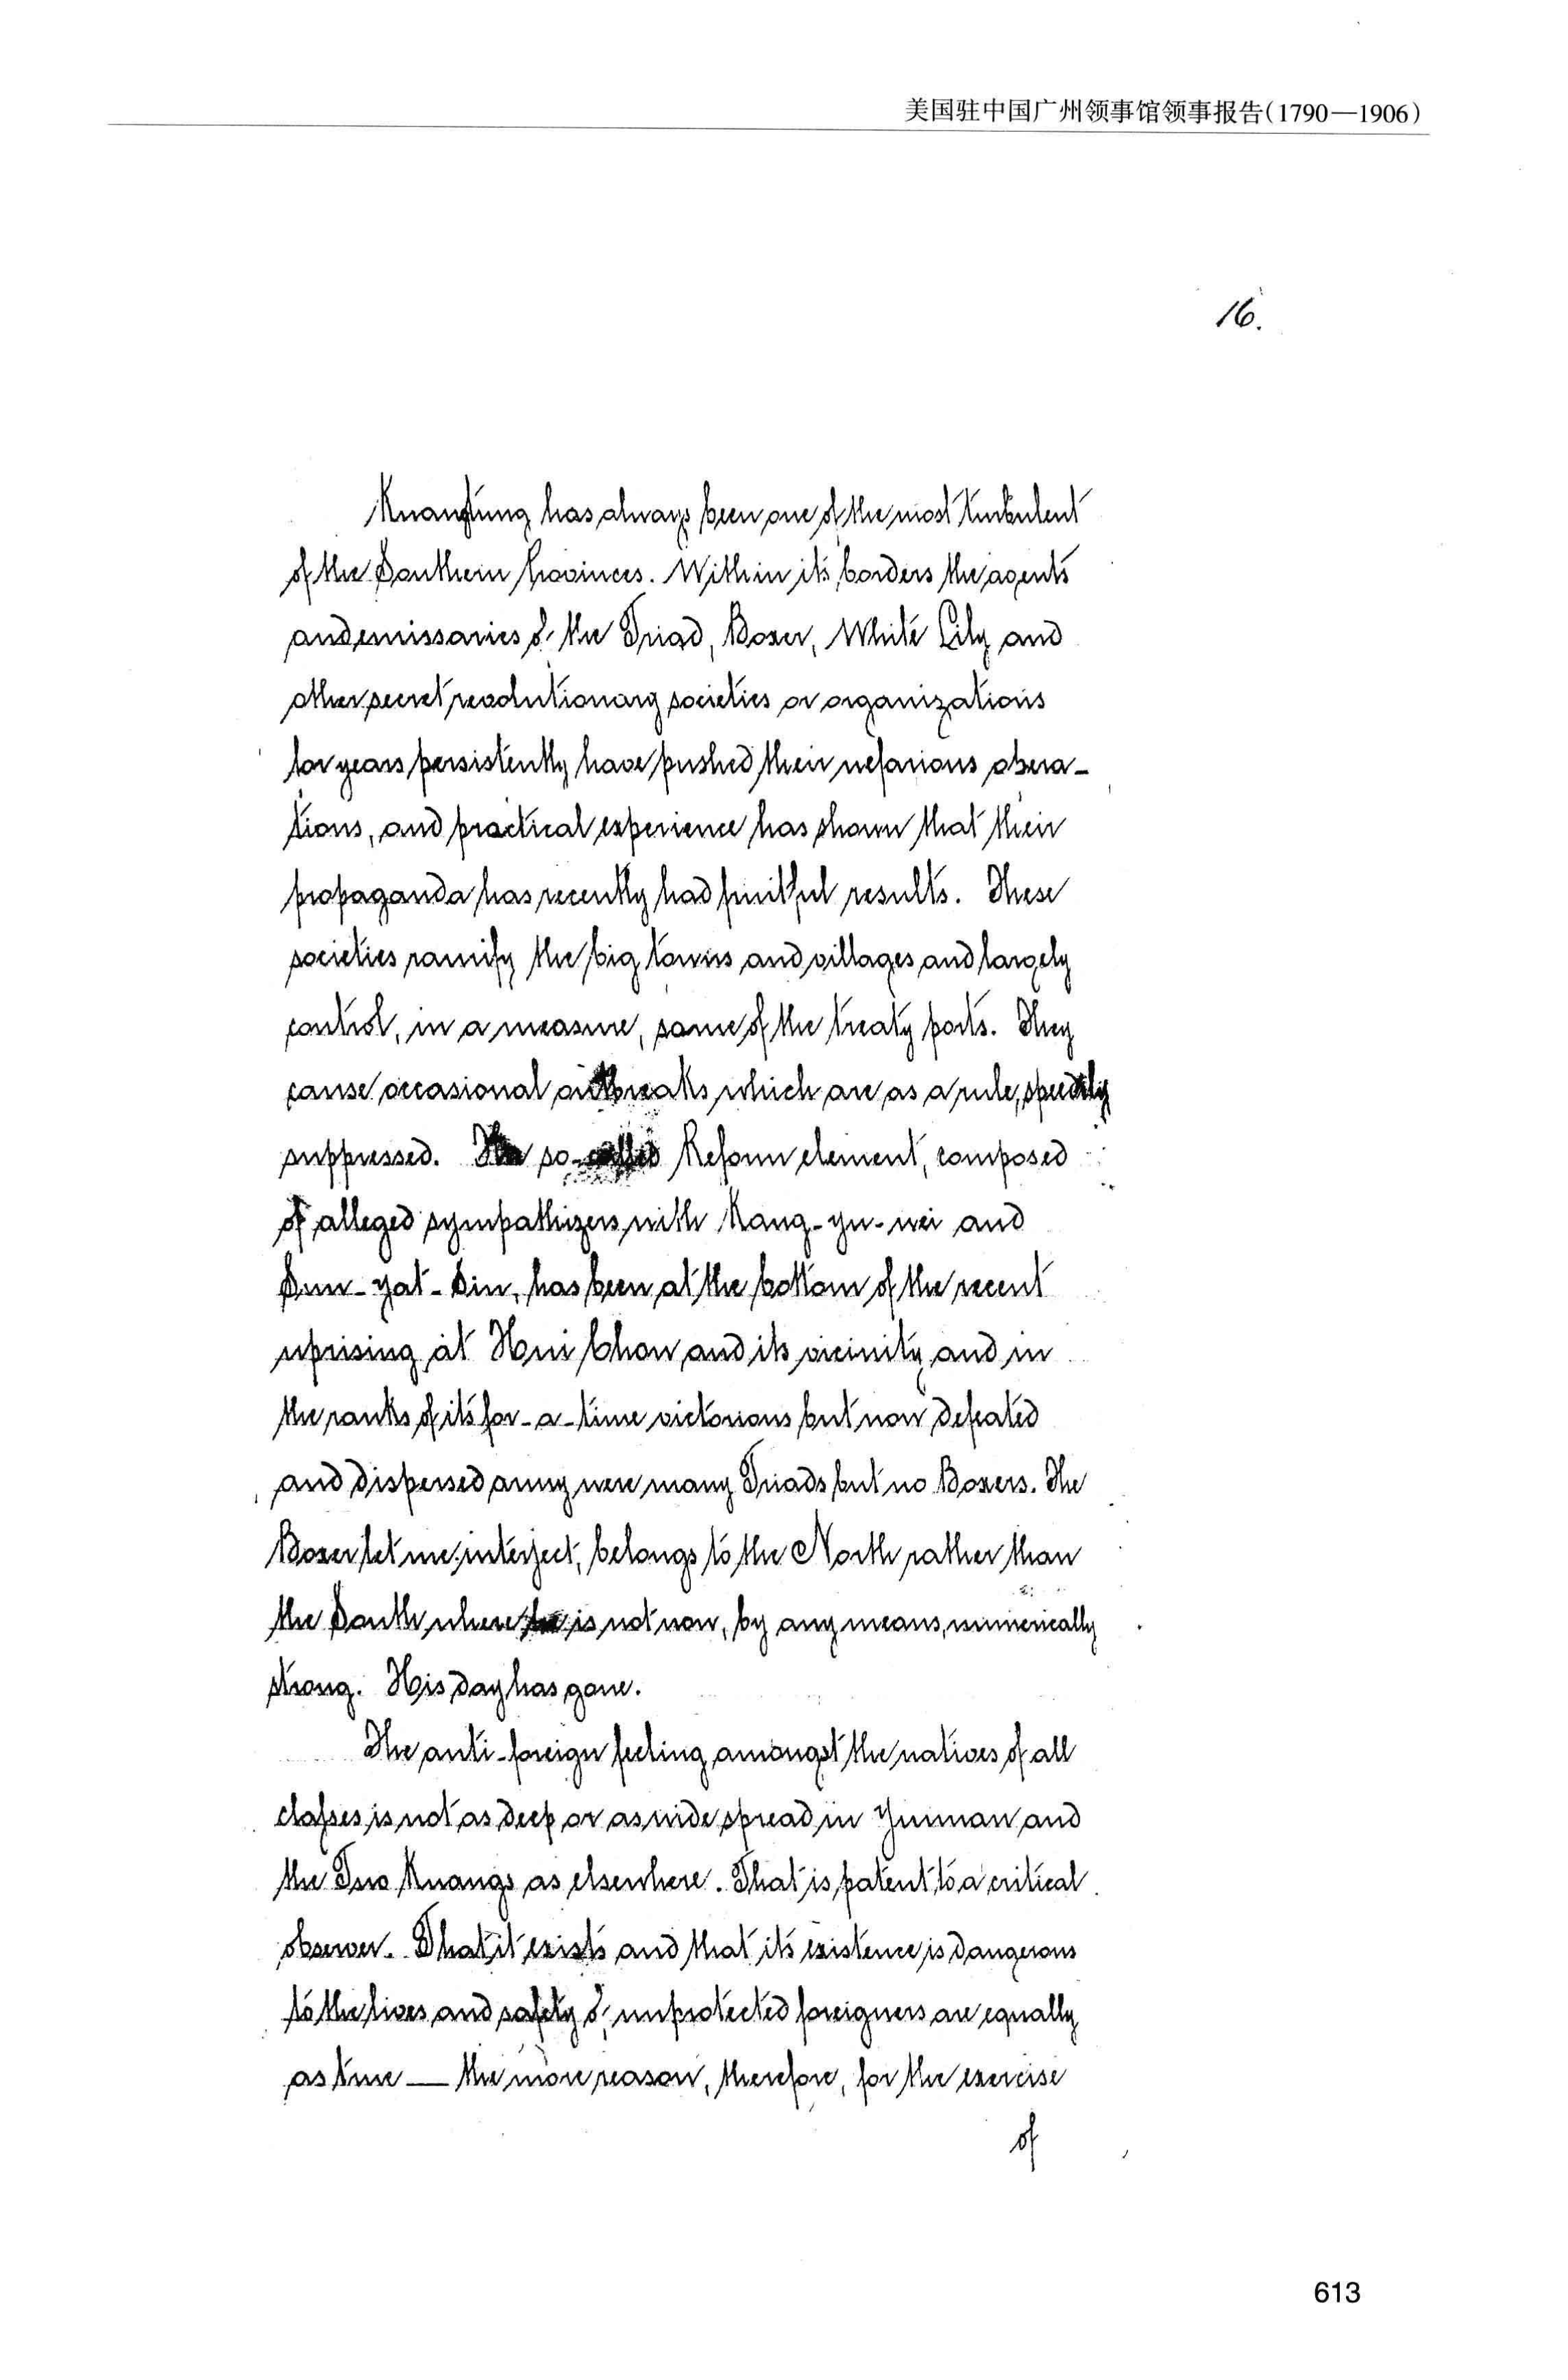 美国驻中国广州领事馆领事报告(1790—1906)
16.
Kuangtung has always been one of the most turbulent
of the Southern Provinces. Within its borders the agents
and emissaries of the Triad, Boxer, White Lily and
other secret revolutionary societies or organizations
for years persistently have pushed their nefarious opera-
tions, and practical experience has shown that their
propaganda has recently had fruitful results. These
societies ramify the big towns and villages and largely
control, in a measure, some of the treaty ports. They
cause occasional outbreaks which are as a rule, speedily
suppressed. The so-called Reform element, composed
of alleged sympathizers with Kang-yu-wei and
Sun-yat-Sin, has been at the bottom of the recent
uprising at Hui Chow and its vicinity and in
the ranks of its for-a-time victorious but now defeated
and dispersed army were many Triads but no Boxers. The
Boxer let me interject, belongs to the North rather than
the South where he is not now, by any means, numerically
strong. His day has gone.
The anti-foreign feeling amongst the natives of all
classes is not as deep or as wide spread in Yunnan and
the Two Kuangs as elsewhere. That is patent to a critical
observer. That it exists and that its existence is dangerous
to the lives and safety of unprotected foreigners are equally
as true — the more reason, therefore, for the exercise
of
613